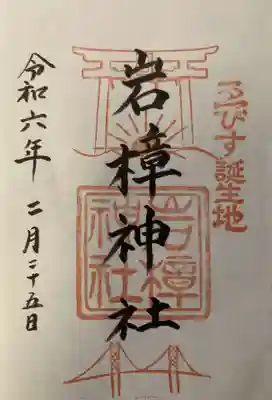 ゑびす誕生地
岩樟神社
岩樟神社
令和六年 二月二十五日